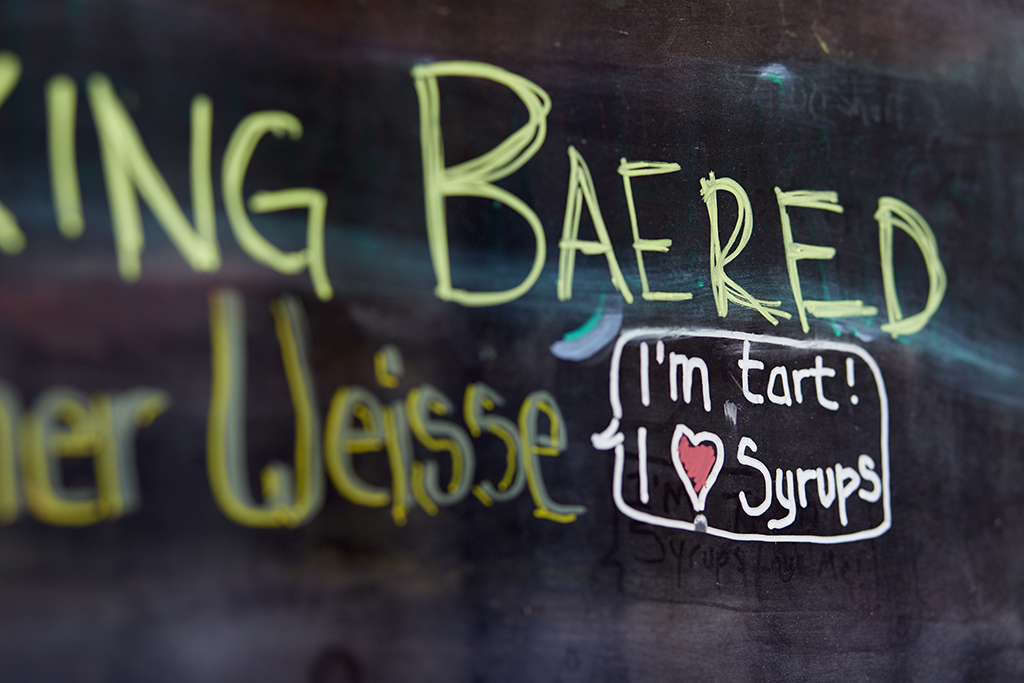 KING BAERED
ner Weisse
I'm tart!
I ♥ Syrups
Syrups Love Me!